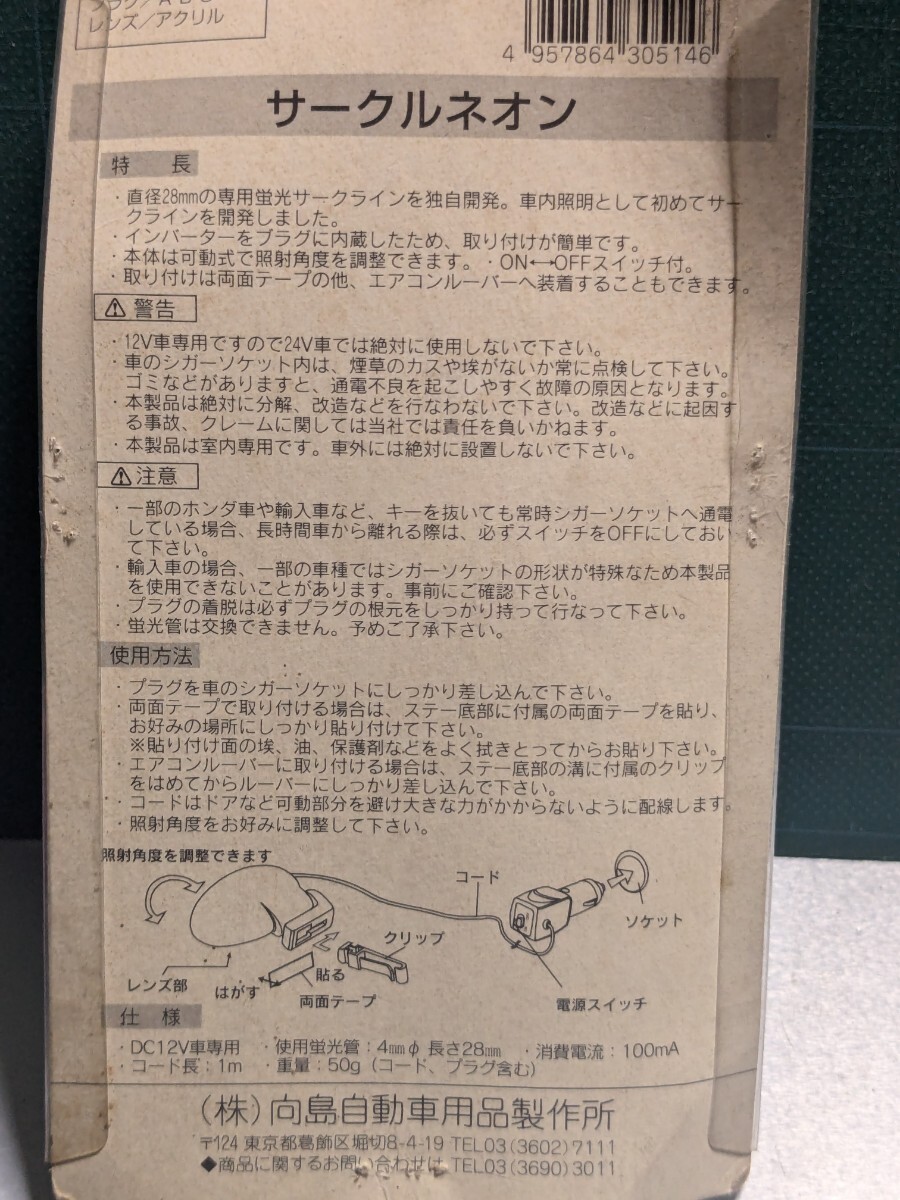 レンズ/アクリル
4 957864 305146
サークルネオン
特 長
・直径28mmの専用蛍光サークラインを独自開発。車内照明として初めてサー
クラインを開発しました。
・インバーターをプラグに内蔵したため、取り付けが簡単です。
・本体は可動式で照射角度を調整できます。・ON↔OFFスイッチ付。
・取り付けは両面テープの他、エアコンルーバーへ装着することもできます。
⚠警告
・12V車専用ですので24V車では絶対に使用しないで下さい。
・車のシガーソケット内は、煙草のカスや埃がないか常に点検して下さい。
ゴミなどがありますと、通電不良を起こしやすく故障の原因となります。
・本製品は絶対に分解、改造などを行なわないで下さい。改造などに起因す
る事故、クレームに関しては当社では責任を負いかねます。
・本製品は室内専用です。車外には絶対に設置しないで下さい。
⚠注意
・一部のホンダ車や輸入車など、キーを抜いても常時シガーソケットへ通電
している場合、長時間車から離れる際は、必ずスイッチをOFFにしておい
て下さい。
・輸入車の場合、一部の車種ではシガーソケットの形状が特殊なため本製品
を使用できないことがあります。事前にご確認下さい。
・プラグの着脱は必ずプラグの根元をしっかり持って行なって下さい。
・蛍光管は交換できません。予めご了承下さい。
使用方法
・プラグを車のシガーソケットにしっかり差し込んで下さい。
・両面テープで取り付ける場合は、ステー底部に付属の両面テープを貼り、
お好みの場所にしっかり貼り付けて下さい。
※貼り付け面の埃、油、保護剤などをよく拭きとってからお貼り下さい。
・エアコンルーバーに取り付ける場合は、ステー底部の溝に付属のクリップ
をはめてからルーバーにしっかり差し込んで下さい。
・コードはドアなど可動部分を避け大きな力がかからないように配線します。
・照射角度をお好みに調整して下さい。
照射角度を調整できます
コード
ソケット
クリップ
レンズ部
はがす
貼る
両面テープ
電源スイッチ
仕 様
・DC12V車専用 ・使用蛍光管：4mmφ 長さ28mm ・消費電流：100mA
・コード長：1m ・重量：50g（コード、プラグ含む）
（株）向島自動車用品製作所
〒124 東京都葛飾区堀切8-4-19 TEL03(3602)7111
◆商品に関するお問い合わせは TEL03(3690)3011